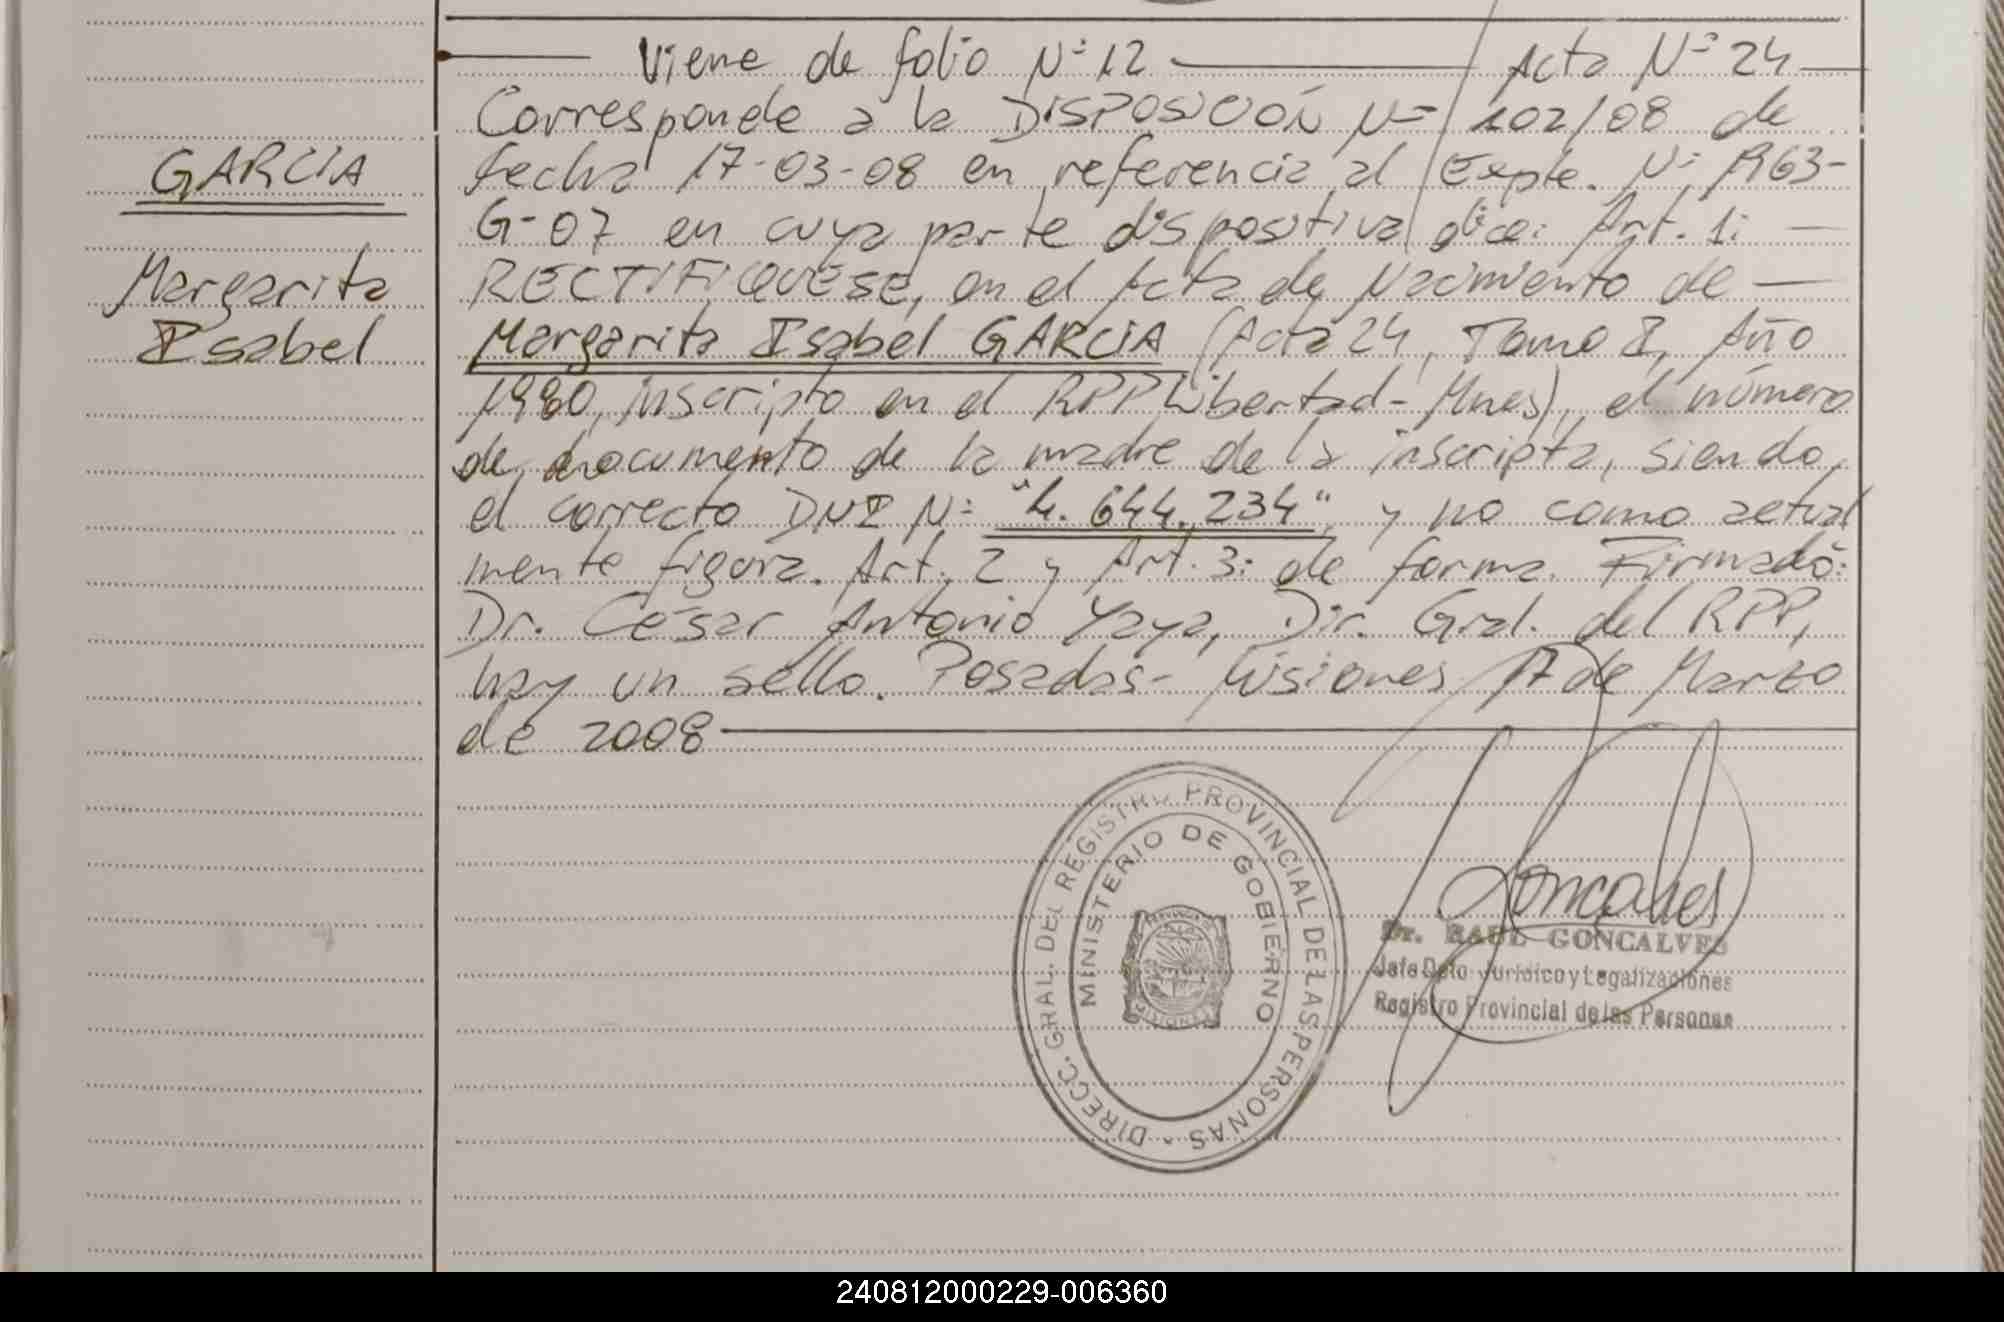 Viene de folio Nº 12 Acta Nº 24
Corresponde a la DISPOSICIÓN Nº 102/08 de
GARCIA
fecha 17-03-08 en referencia al Expte. Nº R63-
G-07 en cuya parte dispositiva dice: Art. 1:
Margarita
RECTIFIQUESE, en el Acta de Nacimiento de
Isabel
Margarita Isabel GARCIA (Acta 24, Tomo I, Año
1980, inscripto en el RPP Libertad-Mnes), el número
de documento de la madre de la inscripta, siendo
el correcto DNI Nº "4.644.234", y no como actual
mente figura. Art. 2 y Art. 3: de forma. Firmado:
Dr. César Antonio Yaya, Dir. Gral. del RPP,
hay un sello. Posadas- Misiones 17 de Marzo
de 2008
DIRECC. GRAL. DEL REGISTRO PROVINCIAL DE LAS PERSONAS
MINISTERIO DE GOBIERNO
PROVINCIA DE
MISIONES
Goncalves
Dr. RAUL GONCALVES
Jefe Dpto Jurídico y Legalizaciones
Registro Provincial de las Personas
240812000229-006360